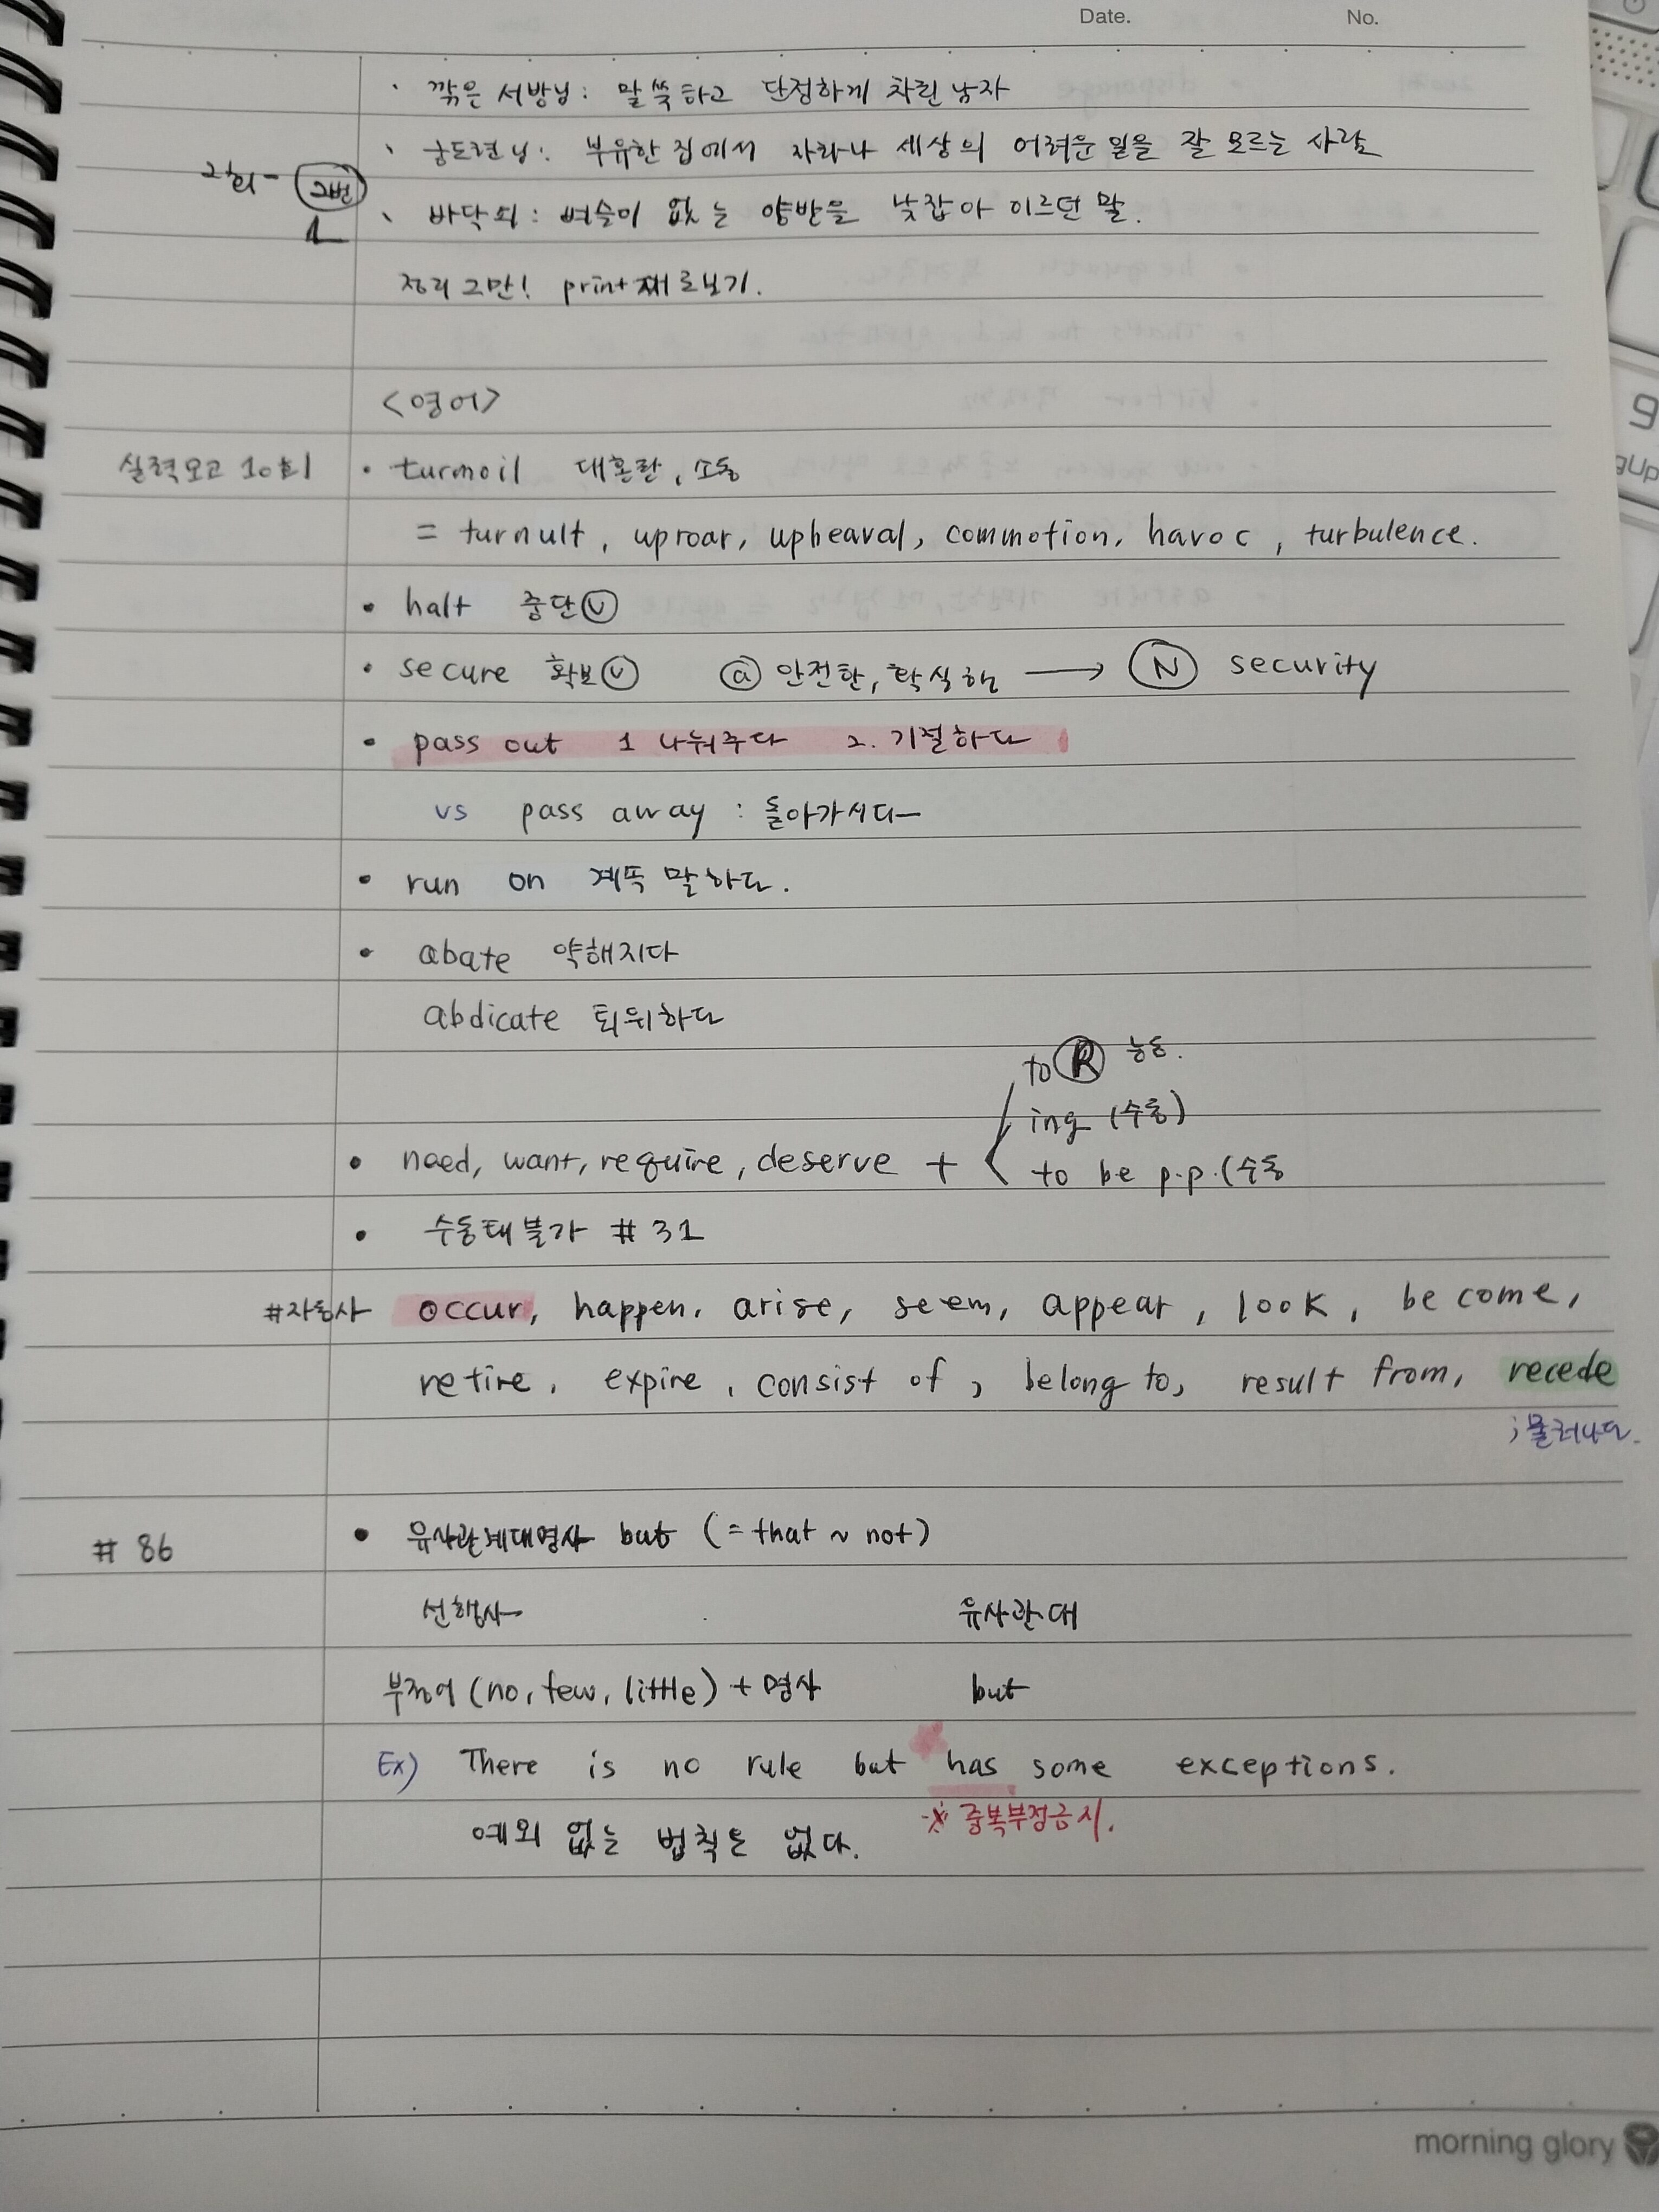 Date. No.
· 깎은 서방님: 말쑥하고 단정하게 차린 남자
· 궁도련님: 부유한 집에서 자라나 세상의 어려운 일을 잘 모르는 사람
2회- 2번
1
· 바닥쇠: 벼슬이 없는 양반을 낮잡아 이르던 말.
정리 그만! print 로보기.
<영어>
실력모고 10회 · turmoil 대혼란, 소동
= turnult, uproar, upheaval, commotion, havoc, turbulence.
· halt 중단 v
· secure 확보 v a 안전한, 확실한 → N security
· pass out 1 나눠주다 2. 기절하다
vs pass away : 돌아가시다
· run on 계속 말하다.
· abate 약해지다
abdicate 퇴위하다
to R 능동.
ing (수동)
· need, want, require, deserve + < to be p.p.(수동
· 수동태불가 # 31
#자동사 occur, happen, arise, seem, appear, look, become,
retire, expire, consist of, belong to, result from, recede
; 물러나다.
# 86 · 유사관계대명사 but (= that ~ not)
선행사 유사관대
부정어 (no, few, little) + 명사 but
Ex) There is no rule but has some exceptions.
※ 중복부정금지.
예외 없는 법칙은 없다.
morning glory
9
gUp